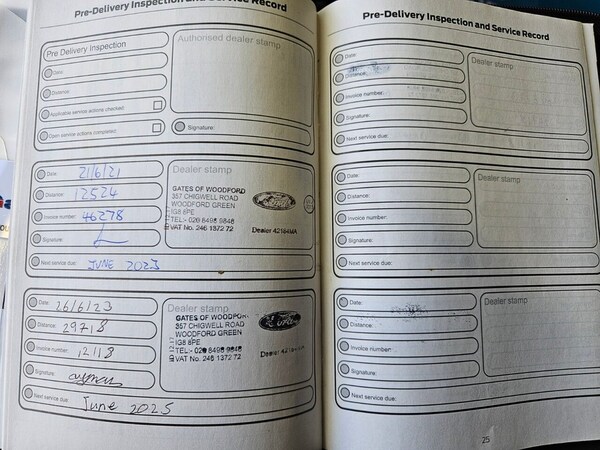 Pre-Delivery Inspection and Service Record
Pre Delivery Inspection
Authorised dealer stamp
Date:
Distance:
Applicable service actions checked:
Open service actions completed:
Signature:
Date: 21/6/21
Dealer stamp
Distance: 12524
GATES OF WOODFORD
357 CHIGWELL ROAD
WOODFORD GREEN
IG8 8PE
TEL:- 020 8498 9848
VAT No. 246 1372 72
Ford
Invoice number: 46278
Signature:
Next service due: JUNE 2023
Date: 26/6/23
Dealer stamp
Distance: 29718
GATES OF WOODFORD
357 CHIGWELL ROAD
WOODFORD GREEN
IG8 8PE
TEL:- 020 8498 9848
VAT No. 246 1372 72
Ford
Invoice number: 12118
Signature:
Next service due: June 2025
Pre-Delivery Inspection and Service Record
Date:
Dealer stamp
Distance:
Invoice number:
Signature:
Next service due:
Date:
Dealer stamp
Distance:
Invoice number:
Signature:
Next service due:
Date:
Dealer stamp
Distance:
Invoice number:
Signature:
Next service due:
25